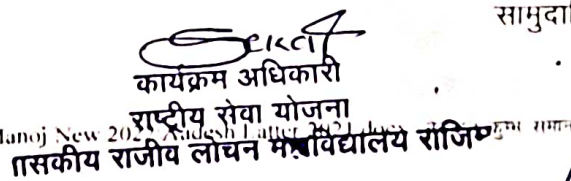 सामुदा
कार्यक्रम अधिकारी
राष्ट्रीय सेवा योजना
Manoj New 202 Aadesh Latter 2021
ासकीय राजीव लोचन महाविद्यालय राजिम